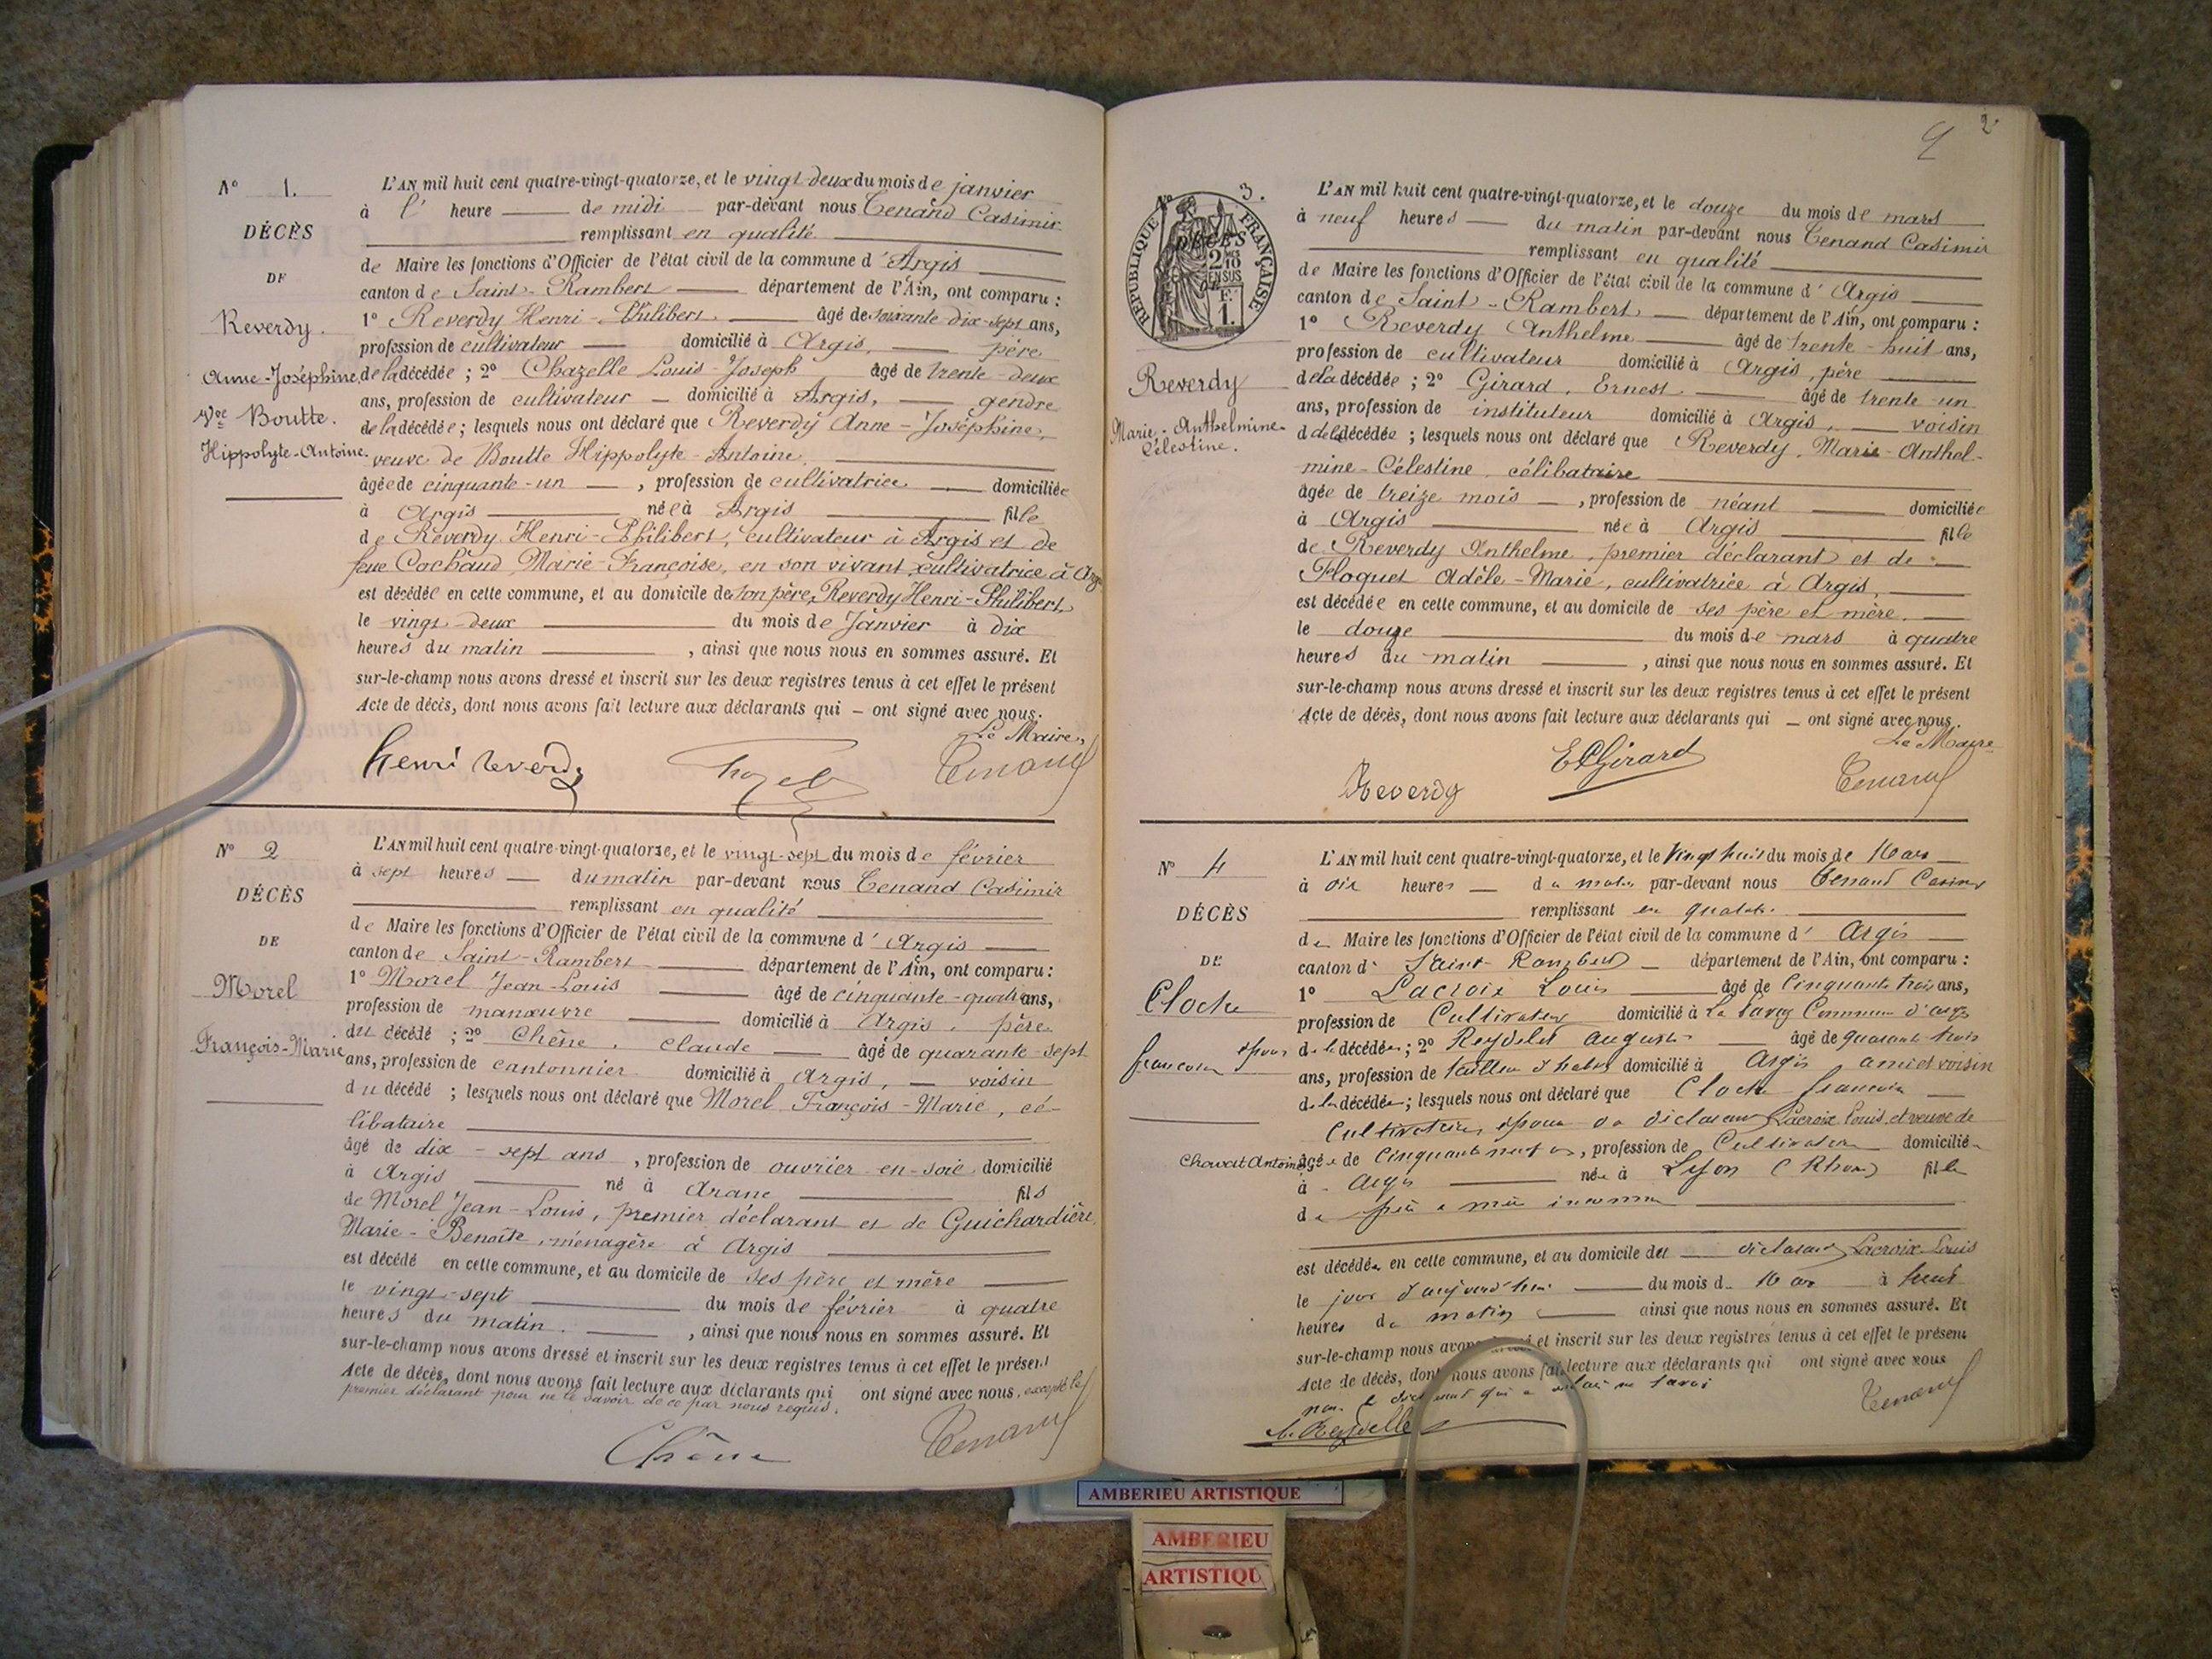 N° 1.
DÉCÈS
DE
Reverdy.
Anne-Joséphine,
Vve Boutte.
Hippolyte-Antoine.
L'AN mil huit cent quatre-vingt-quatorze, et le vingt deux du mois de janvier
à l' heure de midi par-devant nous Tenand Casimir
remplissant en qualité
de Maire les fonctions d'Officier de l'état civil de la commune d'Argis
canton de Saint-Rambert département de l'Ain, ont comparu :
1° Reverdy Henri-Philibert. âgé de soixante-dix-sept ans,
profession de cultivateur domicilié à Argis, père
de la décédée ; 2° Chazelle Louis-Joseph âgé de trente-deux
ans, profession de cultivateur domicilié à Argis, gendre
de la décédée ; lesquels nous ont déclaré que Reverdy Anne-Joséphine,
veuve de Boutte Hippolyte-Antoine,
âgée de cinquante-un , profession de cultivatrice domiciliée
à Argis née à Argis fille
de Reverdy Henri-Philibert, cultivateur à Argis et de
feue Cochaud Marie-Françoise, en son vivant cultivatrice à Argis
est décédée en cette commune, et au domicile de son père, Reverdy Henri-Philibert,
le vingt-deux du mois de Janvier à dix
heures du matin , ainsi que nous nous en sommes assuré. Et
sur-le-champ nous avons dressé et inscrit sur les deux registres tenus à cet effet le présent
Acte de décès, dont nous avons fait lecture aux déclarants qui – ont signé avec nous.
Le Maire,
Henri Reverdy Tenand
N° 2
DÉCÈS
DE
Morel
François-Marie
L'AN mil huit cent quatre-vingt-quatorze, et le vingt-sept du mois de février
à sept heures du matin par-devant nous Tenand Casimir
remplissant en qualité
de Maire les fonctions d'Officier de l'état civil de la commune d'Argis
canton de Saint-Rambert département de l'Ain, ont comparu :
1° Morel Jean-Louis âgé de cinquante-quatre ans,
profession de manœuvre domicilié à Argis, père
du décédé ; 2° Chêne, Claude âgé de quarante-sept
ans, profession de cantonnier domicilié à Argis, voisin
du décédé ; lesquels nous ont déclaré que Morel François-Marie, cé-
libataire
âgé de dix-sept ans , profession de ouvrier en soie domicilié
à Argis né à Arane fils
de Morel Jean-Louis, premier déclarant et de Guichardière
Marie-Benoîte, ménagère à Argis
est décédé en cette commune, et au domicile de ses père et mère
le vingt-sept du mois de février à quatre
heures du matin. , ainsi que nous nous en sommes assuré. Et
sur-le-champ nous avons dressé et inscrit sur les deux registres tenus à cet effet le présent
Acte de décès, dont nous avons fait lecture aux déclarants qui ont signé avec nous, excepté le
premier déclarant pour ne le savoir de ce par nous requis.
Chêne Tenand
2
N° 3.
DÉCÈS
RÉPUBLIQUE FRANÇAISE
2/10 EN SUS
F. 1.
Reverdy
Marie-Anthelmine-
Célestine.
L'AN mil huit cent quatre-vingt-quatorze, et le douze du mois de mars
à neuf heures du matin par-devant nous Tenand Casimir
remplissant en qualité
de Maire les fonctions d'Officier de l'état civil de la commune d'Argis
canton de Saint-Rambert département de l'Ain, ont comparu :
1° Reverdy Anthelme âgé de trente-huit ans,
profession de cultivateur domicilié à Argis, père
de la décédée ; 2° Girard, Ernest âgé de trente-un
ans, profession de instituteur domicilié à Argis, voisin
de la décédée ; lesquels nous ont déclaré que Reverdy, Marie-Anthel-
mine-Célestine, célibataire
âgée de treize mois , profession de néant domiciliée
à Argis née à Argis fille
de Reverdy Anthelme, premier déclarant et de
Floquet Adèle-Marie, cultivatrice à Argis,
est décédée en cette commune, et au domicile de ses père et mère.
le douze du mois de mars à quatre
heures du matin , ainsi que nous nous en sommes assuré. Et
sur-le-champ nous avons dressé et inscrit sur les deux registres tenus à cet effet le présent
Acte de décès, dont nous avons fait lecture aux déclarants qui – ont signé avec nous.
Le Maire
Reverdy Girard Tenand
N° 4
DÉCÈS
DE
Cloche
francoise épouse
Chavait Antoine
L'AN mil huit cent quatre-vingt-quatorze, et le Vingt huit du mois de Mars
à dix heures du matin par-devant nous Tenand Casimir
remplissant en qualité
de Maire les fonctions d'Officier de l'état civil de la commune d'Argis
canton de Saint-Rambert département de l'Ain, ont comparu :
1° Lacroix Louis âgé de Cinquante trois ans,
profession de Cultivateur domicilié à Commune d'argis
de la décédée ; 2° Reydelet auguste âgé de quarante trois
ans, profession de tailleur d'habits domicilié à Argis ami et voisin
de la décédée ; lesquels nous ont déclaré que Cloche francoise
Cultivatrice, épouse du déclarant Lacroix Louis et veuve de
âgée de Cinquante neuf ans, profession de Cultivatrice domiciliée
à Argis née à Lyon (Rhone) fille
de père et mère inconnus
est décédée en cette commune, et au domicile du déclarant Lacroix Louis
le jour d'aujourd'hui du mois de Mars à huit
heures du matin ainsi que nous nous en sommes assuré. Et
sur-le-champ nous avons dressé et inscrit sur les deux registres tenus à cet effet le présent
Acte de décès, dont nous avons fait lecture aux déclarants qui ont signé avec nous
Tenand
AMBERIEU ARTISTIQUE
AMBERIEU
ARTISTIQU